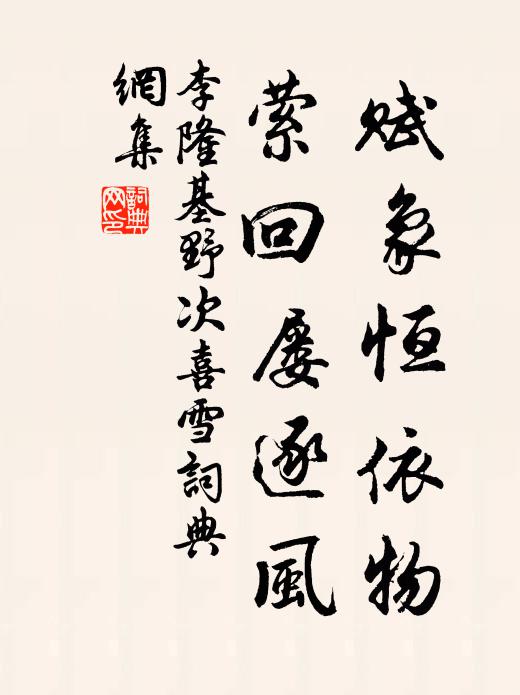 賦象恒依物
縈回屢逐風
李隆基野次喜雪詞典
網集
詞典
网印